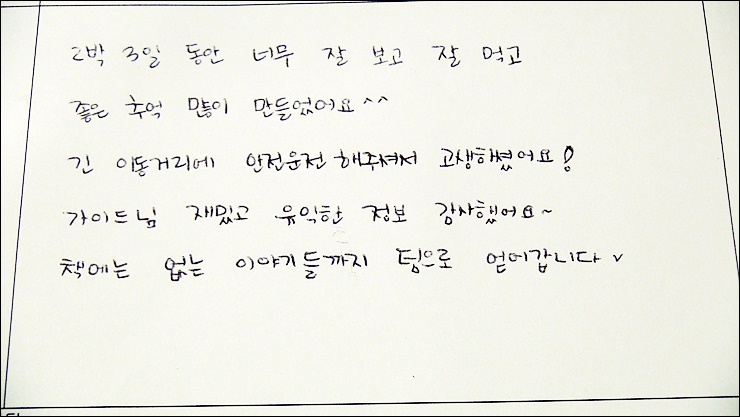 2박 3일 동안 너무 잘 보고 잘 먹고
좋은 추억 많이 만들었어요^^
긴 이동거리에 안전운전 해주셔서 고생하셨어요!
가이드님 재밌고 유익한 정보 감사했어요~
책에는 없는 이야기들까지 팁으로 얻어갑니다v